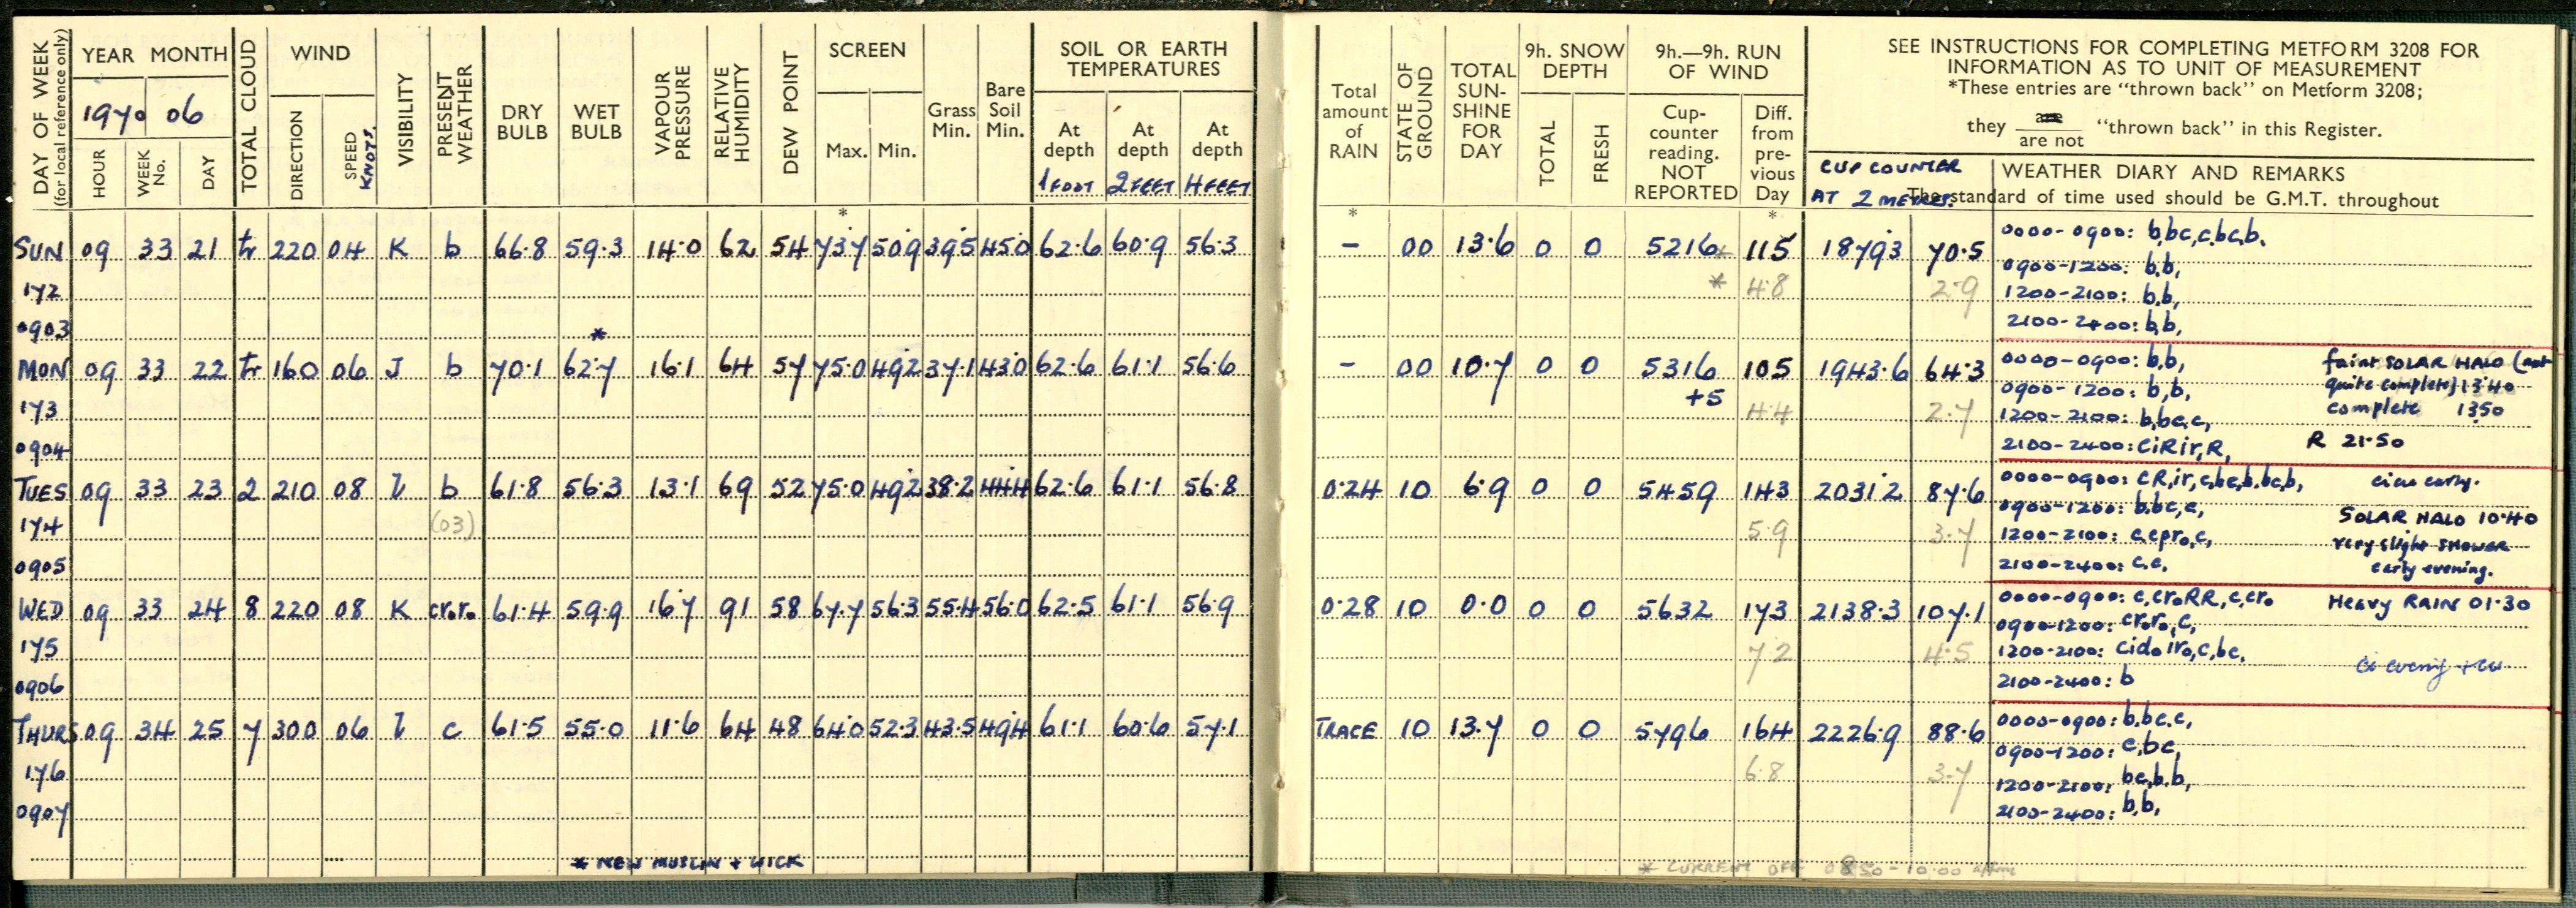 DAY OF WEEK
(for local reference only)
YEAR MONTH
1970 06
HOUR
WEEK No.
DAY
TOTAL CLOUD
WIND
DIRECTION
SPEED KNOTS.
VISIBILITY
PRESENT WEATHER
DRY BULB
WET BULB
VAPOUR PRESSURE
RELATIVE HUMIDITY
DEW POINT
SCREEN
Max. Min.
*
Grass Min.
Bare Soil Min.
SOIL OR EARTH TEMPERATURES
At depth 1 FOOT
At depth 2 FEET
At depth 4 FEET
Total amount of RAIN
*
STATE OF GROUND
TOTAL SUN-SHINE FOR DAY
9h. SNOW DEPTH
TOTAL
FRESH
9h.—9h. RUN OF WIND
Cup-counter reading. NOT REPORTED
Diff. from pre-vious Day
*
SEE INSTRUCTIONS FOR COMPLETING METFORM 3208 FOR
INFORMATION AS TO UNIT OF MEASUREMENT
*These entries are "thrown back" on Metform 3208;
they are / are not "thrown back" in this Register.
CUP COUNTER
AT 2 METRES.
WEATHER DIARY AND REMARKS
The standard of time used should be G.M.T. throughout
SUN 09 33 21 tr 220 04 K b 66.8 59.3 14.0 62 54 73.7 50.9 39.5 45.0 62.6 60.9 56.3 – 00 13.6 0 0 5216 115 1879.3 70.5 0000-0900: b,bc,c,bc,b,
0900-1200: b,b,
172 * 4.8 2.9 1200-2100: b,b,
0903 * 2100-2400: b,b,
MON 09 33 22 tr 160 06 J b 70.1 62.7 16.1 64 57 75.0 49.2 37.1 43.0 62.6 61.1 56.6 – 00 10.7 0 0 5316 105 1943.6 64.3 0000-0900: b,b, faint SOLAR HALO (not
+5 0900-1200: b,b, quite complete) 13.40
173 4.4 2.7 1200-2100: b,bc,c, complete 1350
0904 2100-2400: ciRir,R, R 21.50
TUES 09 33 23 2 210 08 I b 61.8 56.3 13.1 69 52 75.0 49.2 38.2 44.4 62.6 61.1 56.8 0.24 10 6.9 0 0 5459 143 2031.2 87.6 0000-0900: cR,ir,c,bc,b,bc,b, early.
0900-1200: b,bc,c, SOLAR HALO 10.40
174 (03) 5.9 3.7 1200-2100: c,cpro,c, very slight SHOWER
0905 2100-2400: c,c, early evening.
WED 09 33 24 8 220 08 K cr.r. 61.4 59.9 16.7 91 58 67.7 56.3 55.4 56.0 62.5 61.1 56.9 0.28 10 0.0 0 0 5632 173 2138.3 107.1 0000-0900: c,croRR,c,cro Heavy RAIN 01.30
0900-1200: cr.r.,c,
175 7.2 4.5 1200-2100: cido iro,c,bc, Ci evening
0906 2100-2400: b
THURS 09 34 25 7 300 06 I c 61.5 55.0 11.6 64 48 64.0 52.3 43.5 49.4 61.1 60.6 57.1 TRACE 10 13.7 0 0 5796 164 2226.9 88.6 0000-0900: b,bc,c,
0900-1200: c,bc,
176 6.8 3.7 1200-2100: bc,b,b,
0907 2100-2400: b,b,
* NEW MUSLIN + WICK
* CURRENT OFF 0850-10.00